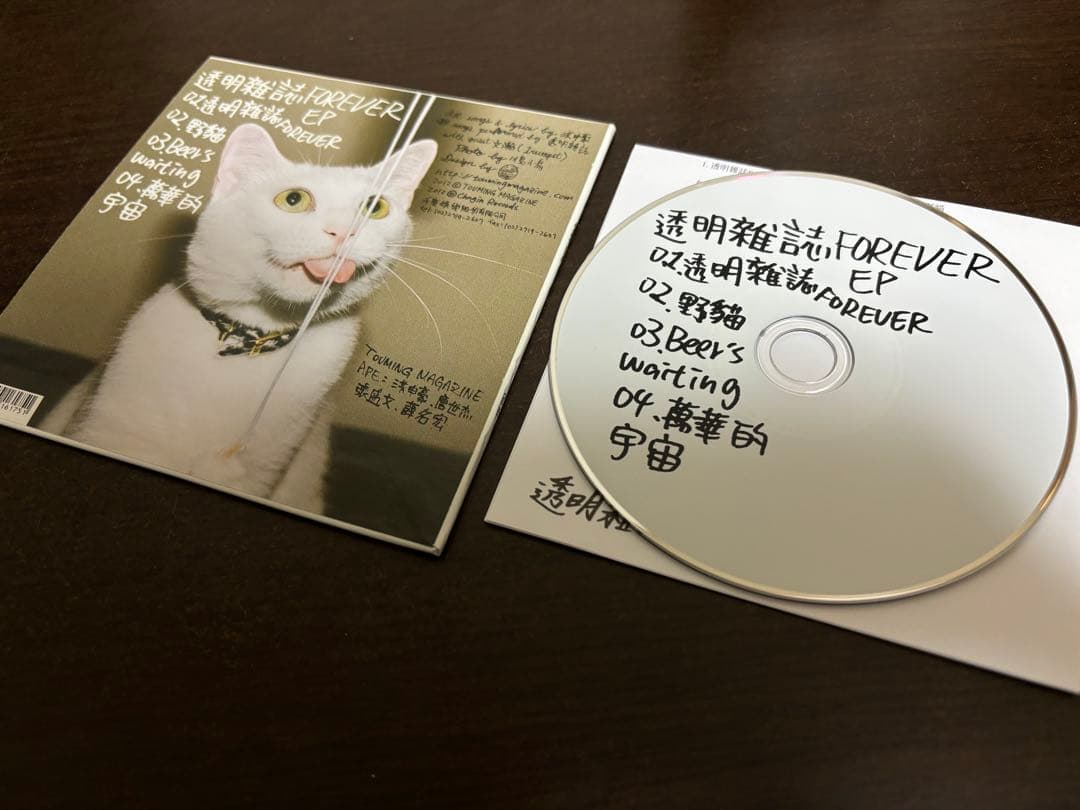 透明雜誌FOREVER
EP
01.透明雜誌FOREVER
02.野貓
03.Beer's
waiting
04.萬華的
宇宙
songs & lyrics by
songs performed by 透明雜誌
with guest (trumpet)
Photo by 川島小鳥
Design by
http://toumingmagazine.com
2012 © TOUMING MAGAZINE
2012 ℗ Chynin Records
TOUMING MAGAZINE
ARE: 洪申豪、唐世杰
張盛文、薛名宏
1. 透明雜誌
透明雜誌FOREVER
EP
01.透明雜誌FOREVER
02.野貓
03.Beer's
waiting
04.萬華的
宇宙
透明雜